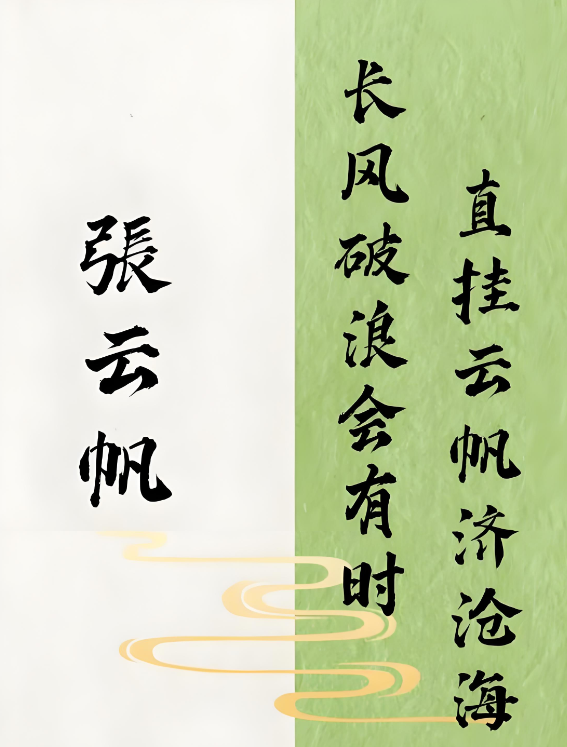 張云帆
长风破浪会有时
直挂云帆济沧海